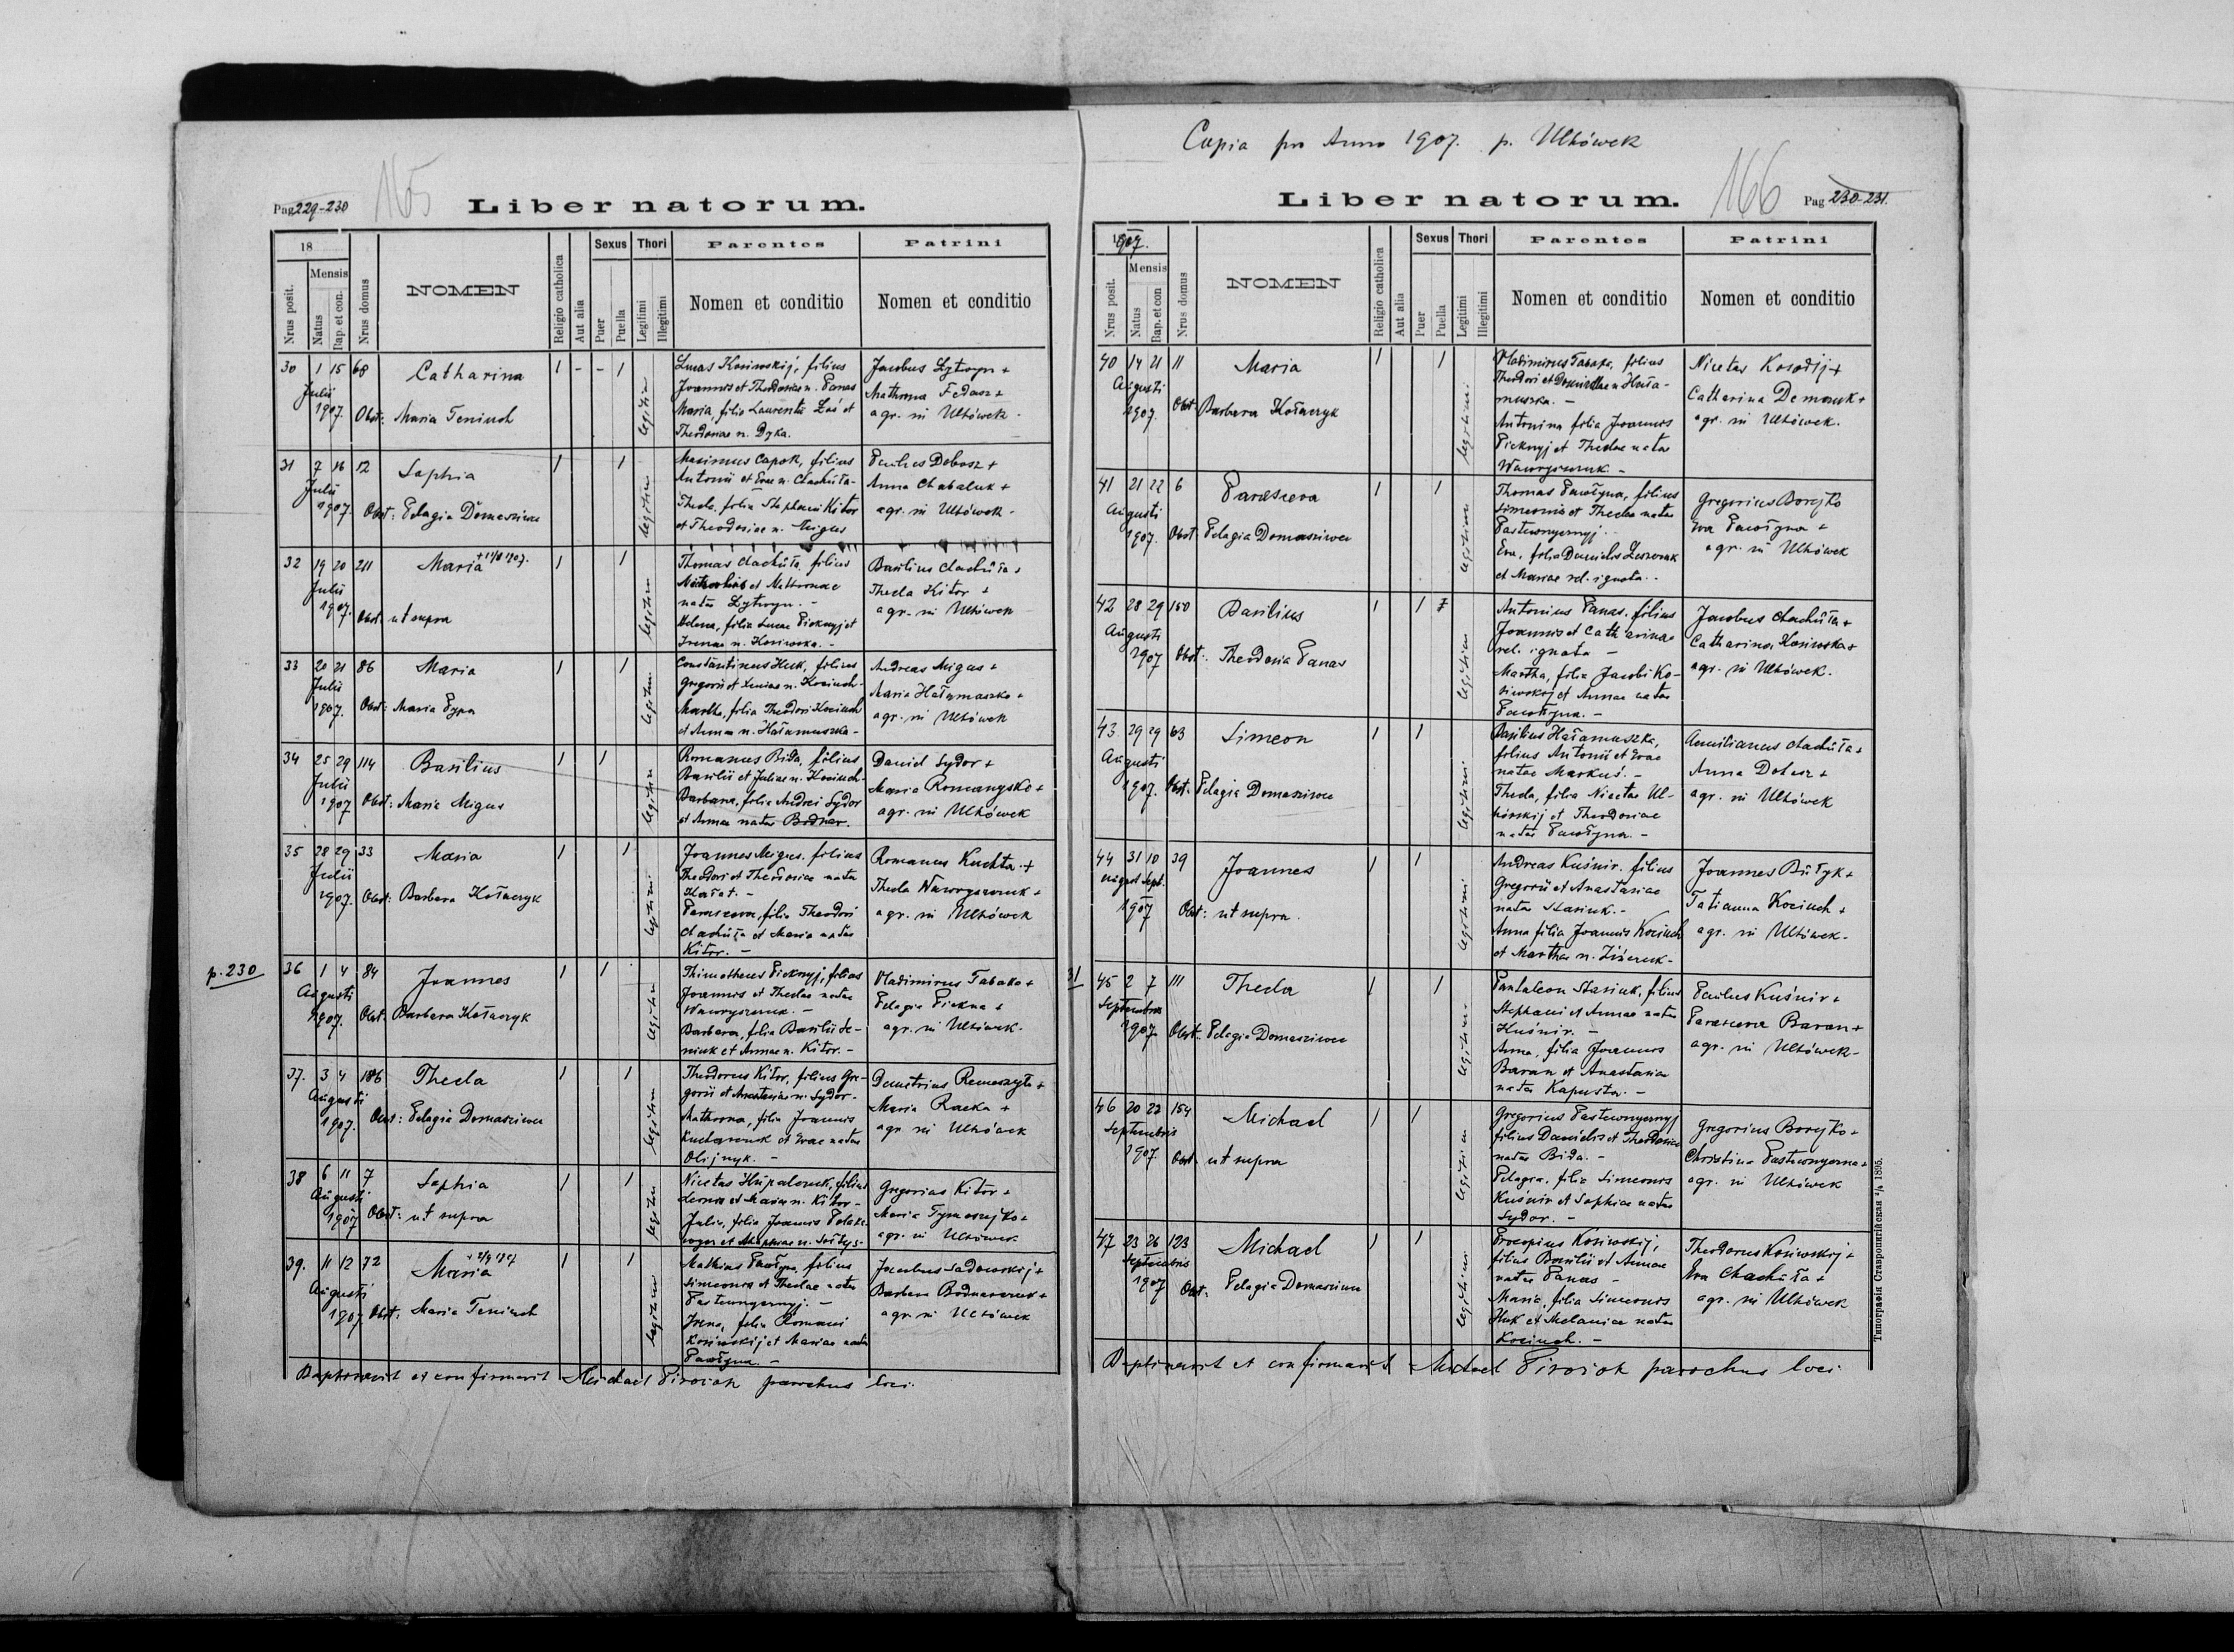 Pag 229-230
165
Liber natorum.
18
Nrus posit.
Mensis
Natus
Bap. et con.
Nrus domus
NOMEN
Religio catholica
Aut alia
Sexus
Puer
Puella
Thori
Legitimi
Illegitimi
Parentes
Nomen et conditio
Patrini
Nomen et conditio
30 1 15 68 Catharina 1 - - 1
Julii
1907. Obst: Maria Teniuch
legitim
Lucas Kosiwskij, filius
Joannis et Theodosiae n. Panas
Maria, filia Laurentii Zoś et
Theodosiae n. Dyka.
Jacobus Lytwyn +
Mathrona Fedasz +
agr. in Uhówek.
31 7 16 12 Sophia 1 1
Julii
1907. Obst: Pelagia Domasziwec
legitim
Maximus Capok, filius
Antonii et Evae n. Chachuła -
Thecla, filia Stephani Kitor
et Theodosiae n. Migus
Paulus Dobosz +
Anna Chabaluk +
agr. in Uhówek -
32 19 20 211 Maria + 11/8 1907. 1 1
Julii
1907. Obst: ut supra
legitim
Thomas Chachuła, filius
et Mathronae
natae Lytwyn. -
Helena, filia Lucae Pieknyj et
Irenae n. Kosiwska. -
Basilius Chachuła +
Thecla Kitor +
agr. in Uhówek
33 20 21 86 Maria 1 1
Julii
1907. Obst: Maria Pypa
legitim
Constantinus Huk, filius
Gregorii et Xeniae n. Kociuch -
Martha, filia Theodori Kociuch
et Annae n. Hałamuszka -
Andreas Migus +
Maria Hałamuszka +
agr. in Uhówek
34 25 29 114 Basilius 1 1
Julii
1907 Obst: Maria Migus
legitim
Romanus Bida, filius
Basilii et Juliae n. Kociuch
Barbara, filia Andrei Sydor
et Annae natae Bodnar.
Daniel Sydor +
Maria Romanysko +
agr. in Uhówek
35 28 29 33 Maria 1 1
Julii
1907. Obst: Barbara Kołaczyk
legitimi
Joannes Migus, filius
Theodori et Theodosiae natae
Hałat. -
Parasceva, filia Theodori
Chachuła et Maria natae
Kitor. -
Romanus Kuchta +
Thecla Wawryszczuk +
agr. in Uhówek
p. 230
36 1 4 84 Joannes 1 1
Augusti
1907. Obst. Barbara Kołaczyk
legitim
Thimotheus Pieknyj, filius
Joannis et Theclae natae
Wawryszczuk. -
Barbara, filia Basilii Se-
niuk et Annae n. Kitor. -
Vladimirus Tabaka +
Pelagia Piekna +
agr. in Uhówek.
37. 3 4 186 Thecla 1 1
Augusti
1907. Obst: Pelagia Domasziwec
legitim
Theodorus Kitor, filius Gre-
gorii et Anastasiae n. Sydor -
Mathrona, filia Joannis
Kucharczuk et Evae natae
Olijnyk. -
Demetrius Remeszyło +
Maria Racka +
agr. in Uhówek
38 6 11 7 Sophia 1 1
Augusti
1907 Obst: ut supra
legitim
Nicetas Hupalczuk, filius
et Mariae n. Kitor -
Julia, filia Joannis
Gregorius Kitor +
Maria Tymoszejko +
agr. in Uhówek
39. 11 12 72 Maria + 2/9 1907 1 1
Augusti
1907 Obst: Maria Teniuch
legitim
Mathias Pawłyna, filius
Simeonis et Theclae natae
Pastuwnyernyj. -
Irena, filia Romani
Kosiwskij et Mariae natae
Pawłyna. -
Jacobus Sadowskij +
Barbara Bodnarczuk +
agr. in Uhówek
Baptisavit et confirmavit Michael Pirożok parochus loci.
Copia pro Anno 1907. p. Uhówek
Liber natorum.
166
Pag 230-231.
1907.
Nrus posit.
Mensis
Natus
Bap. et con
Nrus domus
NOMEN
Religio catholica
Aut alia
Sexus
Puer
Puella
Thori
Legitimi
Illegitimi
Parentes
Nomen et conditio
Patrini
Nomen et conditio
40 14 21 11 Maria 1 1
Augusti
1907. Obst Barbara Kołaczyk
legitimi
Vladimirus Tabaka, filius
Theodori et Domicellae n Hała-
muszka. -
Antonina filia Joannis
Pieknyj et Theclae natae
Wawryszczuk -
Nicetas Kosodij +
Catharina Demczuk +
agr. in Uhówek.
41 21 22 6 Parasceva 1 1
Augusti
1907. Obst Pelagia Domasziwec
legitim
Thomas Pawłyna, filius
Simeonis et Theclae natae
Pastuwnyernyj.
Eva, filia Danielis Leszczuk
et Mariae rel. ignota. -
Gregorius Borejko
Eva Pawłyna +
agr. in Uhówek
42 28 29 150 Basilius 1 1
Augusti
1907 Obst: Theodosia Panas
legitim
Antonius Panas, filius
Joannis et Catharinae
rel. ignota -
Martha, filia Jacobi Ko-
siwskij et Annae natae
Pawłyna. -
Jacobus Chachuła +
Catharina Kosiwska +
agr. in Uhówek.
43 29 29 63 Simeon 1 1
Augusti
1907. Obst. Pelagia Domasziwec
legitimi
Basilius Hałamuszka,
filius Antonii et Evae
natae Markuś. -
Thecla, filia Nicetae Ul-
hówskij et Theodosiae
natae Pawłyna. -
Aemilianus Chachuła +
Anna Dobosz +
agr. in Uhówek
44 31 10 39 Joannes 1 1
August Sept.
1907 Obst: ut supra.
legitimi
Andreas Kuśnir, filius
Gregorii et Anastasiae
natae Stasiuk. -
Anna filia Joannis Kociuch
et Marthae n. -
Joannes Bułyk +
Tatianna Kociuch +
agr. in Uhówek -
31
45 2 7 111 Thecla 1 1
Septembris
1907 Obst: Pelagia Domasziwec
legitim
Pantaleon Stasiuk, filius
Stephani et Annae natae
Kuśnir. -
Anna, filia Joannis
Baran et Anastasiae
natae Kapusta. -
Paulus Kuśnir +
Parasceva Baran +
agr. in Uhówek -
46 20 22 154 Michael 1 1
Septembris
1907 Obst. ut supra
legitim
Gregorius Pastuwnyernyj
filius Danielis et Theodosiae
natae Bida. -
Pelagia, filia Simeonis
Kuśnir et Sophiae natae
Sydor. -
Gregorius Borejko +
Christina Pastuwnyerna +
agr. in Uhówek
47 23 26 123 Michael 1 1
Septembris
1907 Obst: Pelagia Domasziwec
legitim
Procopius Kosiwskij,
filius Basilii et Annae
natae Panas -
Maria, filia Simeonis
Huk et Melaniae natae
Kociuch. -
Theodorus Kosiwskij +
Eva Chachuła +
agr. in Uhówek
Baptisavit et confirmavit Michael Pirożok parochus loci.
Типографія Ставропигійская 1895.